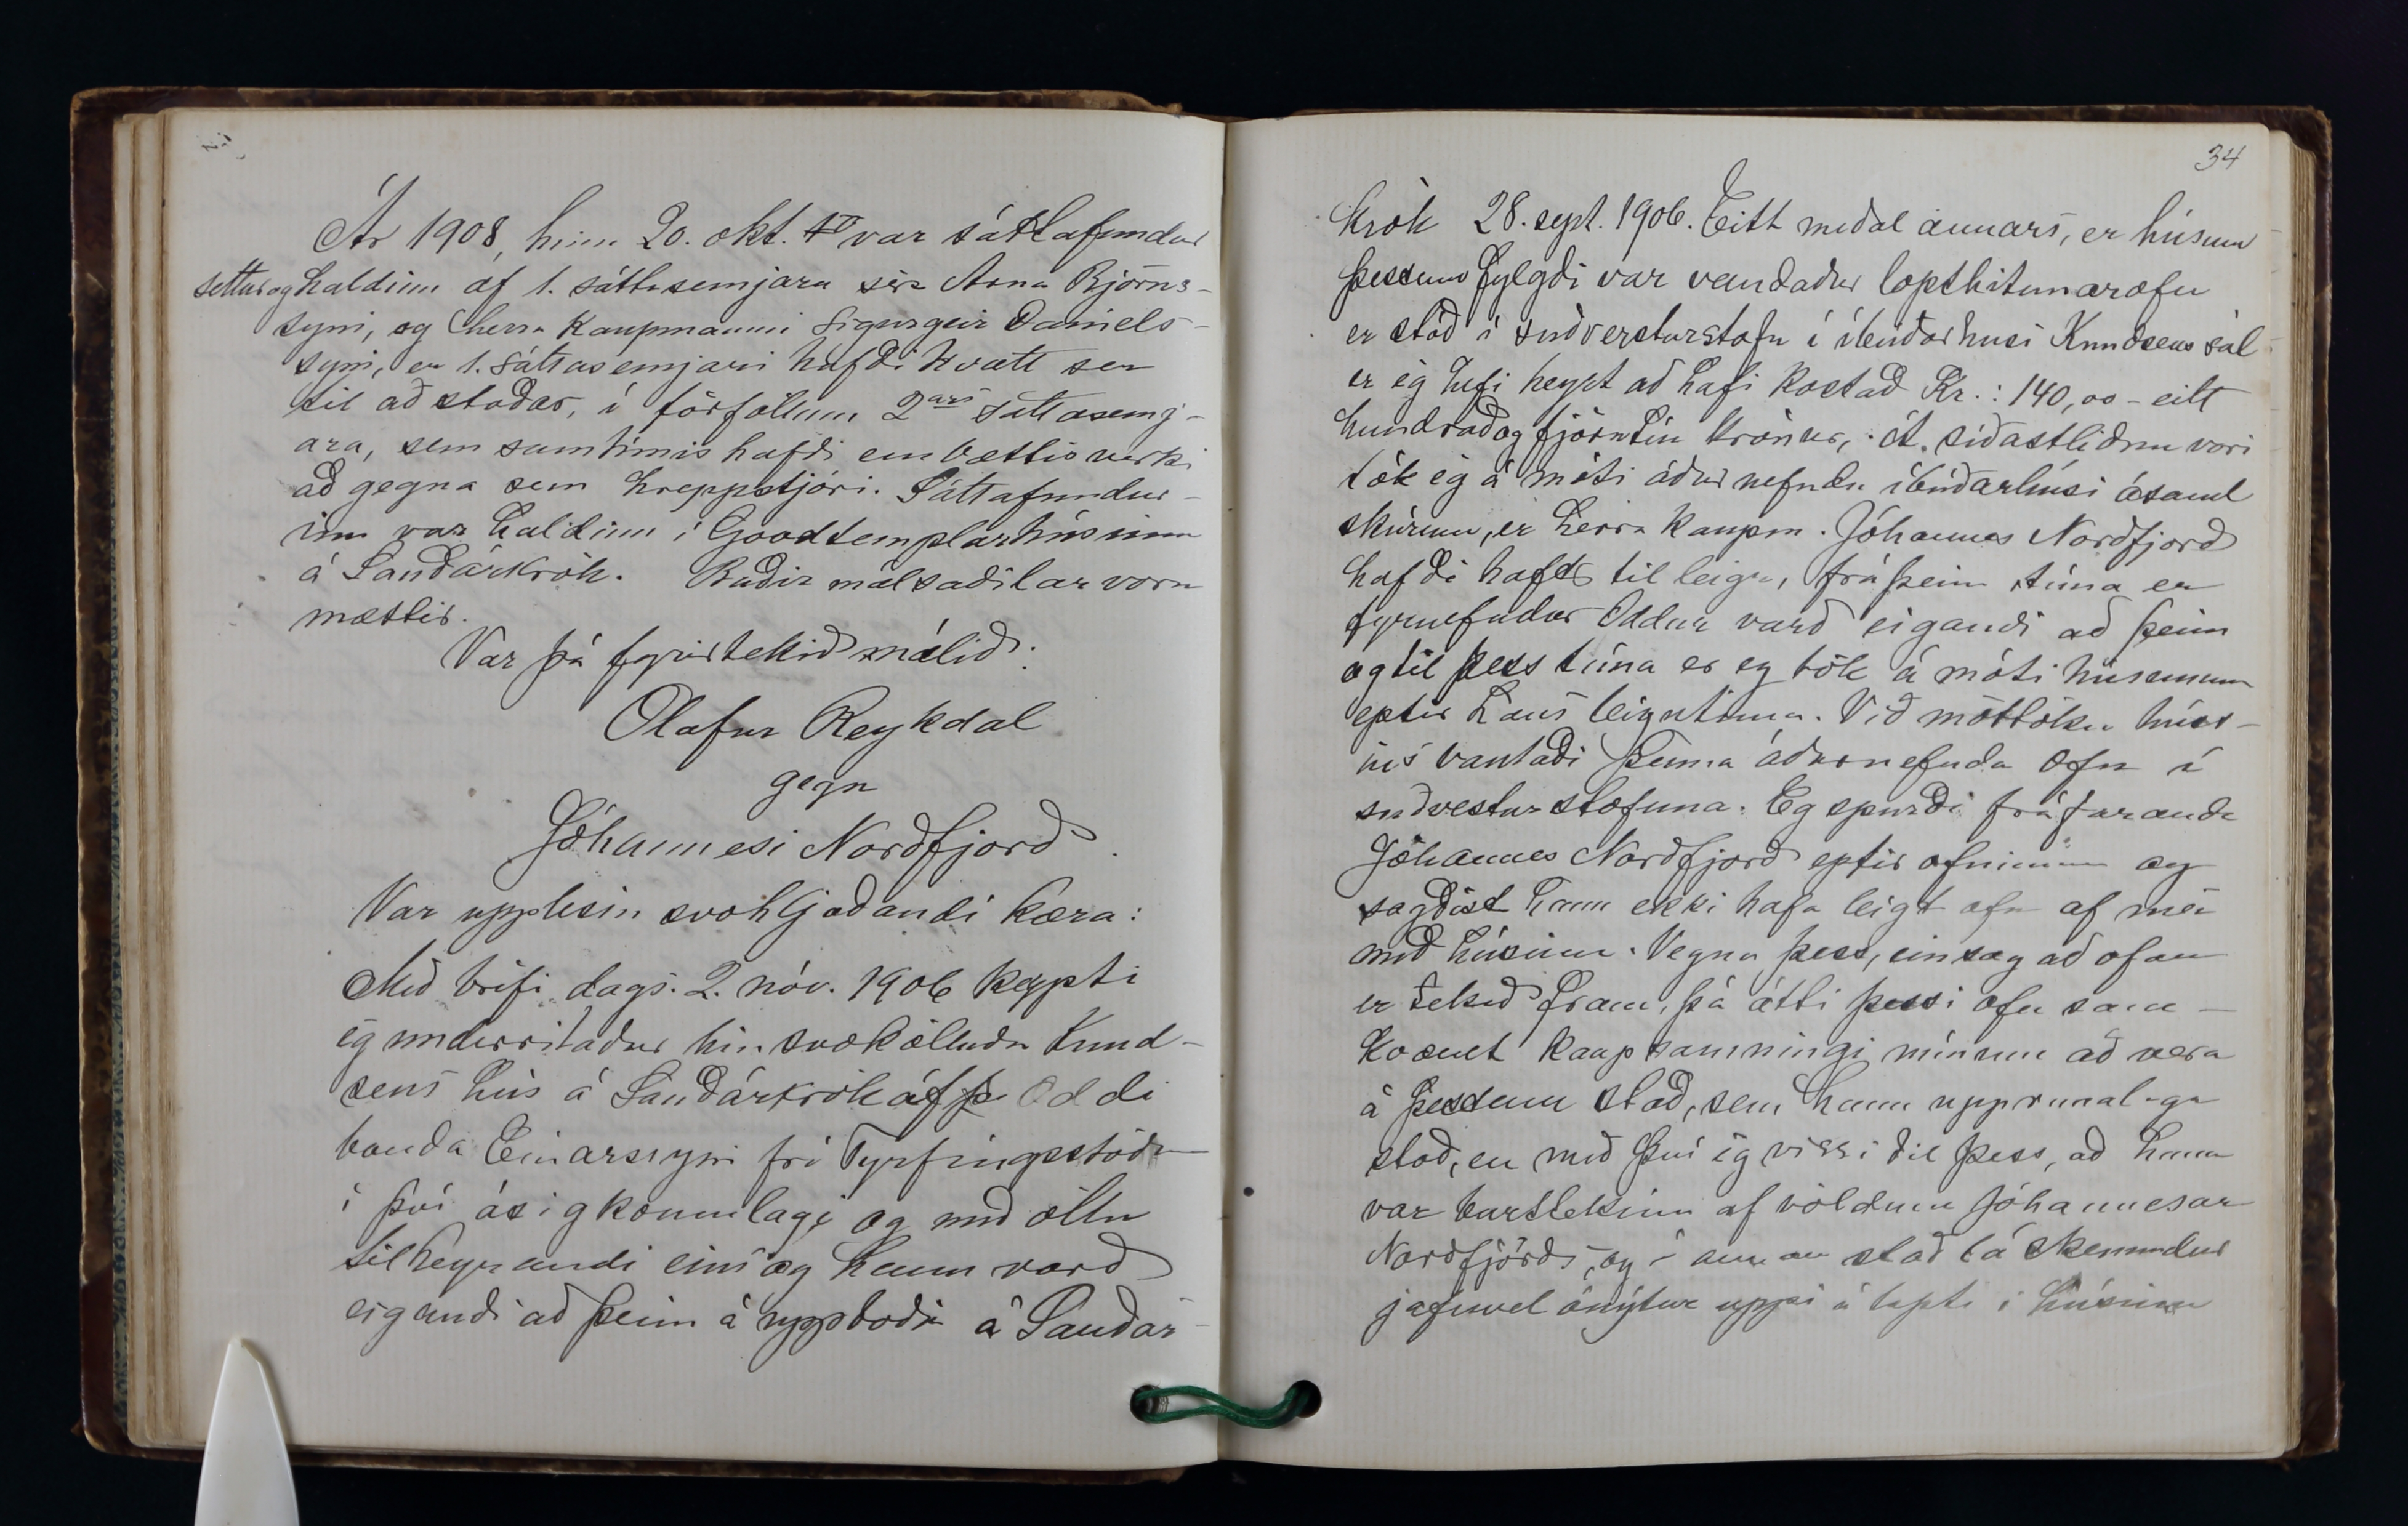 Ár 1908, hinn 20. okt. var sáttafundur
settur og haldinn af 1. sáttasemjara síra Árna Björns-
syni, og herra kaupmanni Sigurgeir Daniels-
syni, er 1. sáttasemjari hafði kvatt sér
til aðstoðar, í förföllum 2ars sáttasemj-
ara, sem samtímis hafði embættisverki
að gegna sem hreppstjóri. Sáttafundur-
inn var haldinn í Goodtemplarhúsinu
á Sauðárkrók. Báðir málsaðilar voru
mættir.
Var þá fyrirtekið málið:
Olafur Reykdal
gegn
Jóhannesi Nordfjord
Var upplesin svohljóðandi kæra:
Með bréfi dags. 2. nóv. 1906 keypti
ég undirritaður hin svokölluðu Knud-
sens hús á Sauðárkrók af Oddi
bónda Einarssyni frá Tyrfingsstöðum
í því ásigkomulagi og með öllu
tilheyrandi eins og hann varð
eigandi að þeim á uppboði á Sauðár-
34
krók 28. sept. 1906. Eitt meðal annars, er húsum
þessum fylgdi var vandaður lopthitunarofn
er stóð í suðvesturstofu í íbúðarhúsi Knudsens sál
er ég hefi heyrt að hafi kostað Kr.: 140,00 - eitt
hundrað og fjörutíu krónur, Á síðastliðnu vori
tók ég á móti áður nefndu íbúðarhúsi ásamt
skúrum, er herra kaupm. Jóhannes Nordfjord
hafði haft til leigu, frá þeim tíma er
fyrnefndur Oddur varð eigandi að þeim
og til þess tíma er eg tók á móti húsunum
eptir hans leigutíma. Við móttöku húss-
ins vantaði þenna áðurnefnda ofn í
suðvesturstofuna. Eg spurði fráfarandi
Jóhannes Nordfjord eptir ofninum og
sagðist hann ekki hafa leigt ofn af mér
með húsinu. Vegna þess, eins og að ofan
er tekið fram, þá átti þessi ofn sam-
kvæmt kaupsamningi mínum að vera
á þessum stað, sem hann upprunalega
stóð, en með því ég vissi til þess, að hann
var burttekinn af völdum Jóhannesar
Nordfjörds, og í annan stað lá skemmdur
jafnvel ónýtur uppi á lopti í húsinu